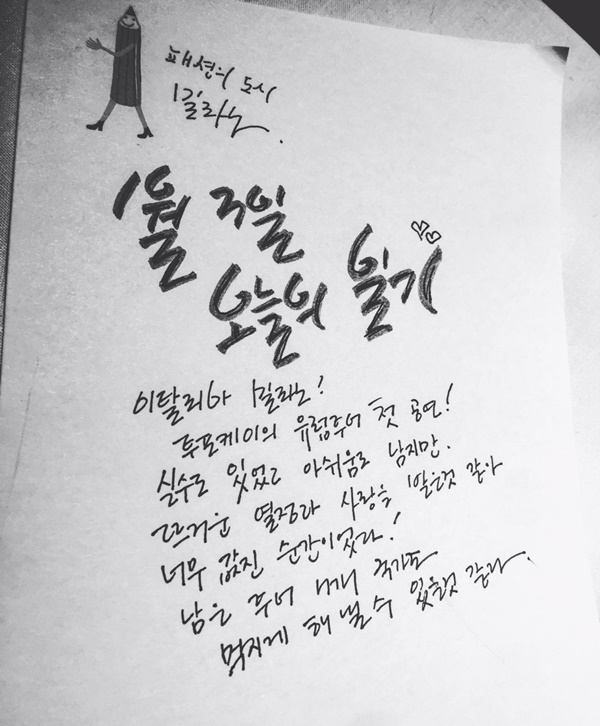 패션의 도시
밀라노.
1월 3일
오늘의 일기
이탈리아 밀라노!
투포케이의 유럽투어 첫 공연!
실수도 있었고 아쉬움도 남지만.
뜨거운 열정과 사랑을 받은것 같아
너무 값진 순간이었다!
남은 투어 4개 국가도
멋지게 해 낼 수 있을것 같다.